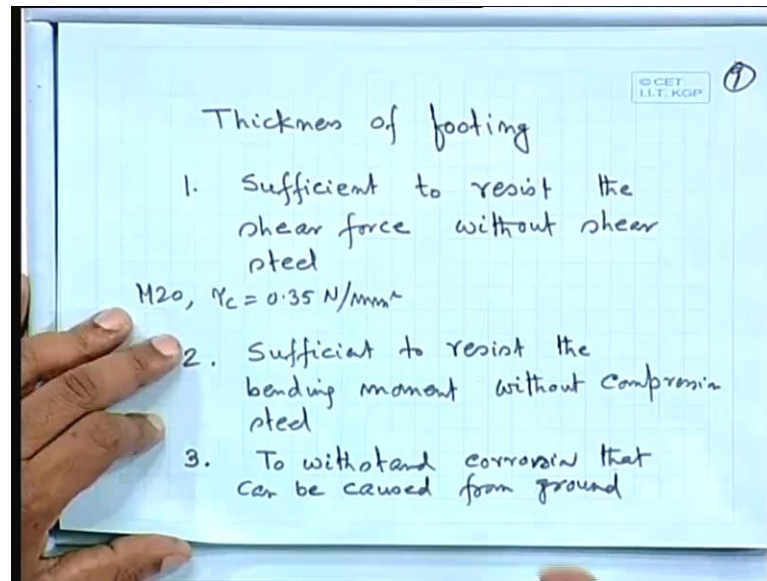 © CET
I.I.T. KGP
9
Thickness of footing
1. Sufficient to resist the
shear force without shear
steel
M20, τc = 0.35 N/mm²
2. Sufficient to resist the
bending moment without compression
steel
3. To withstand corrosion that
can be caused from ground